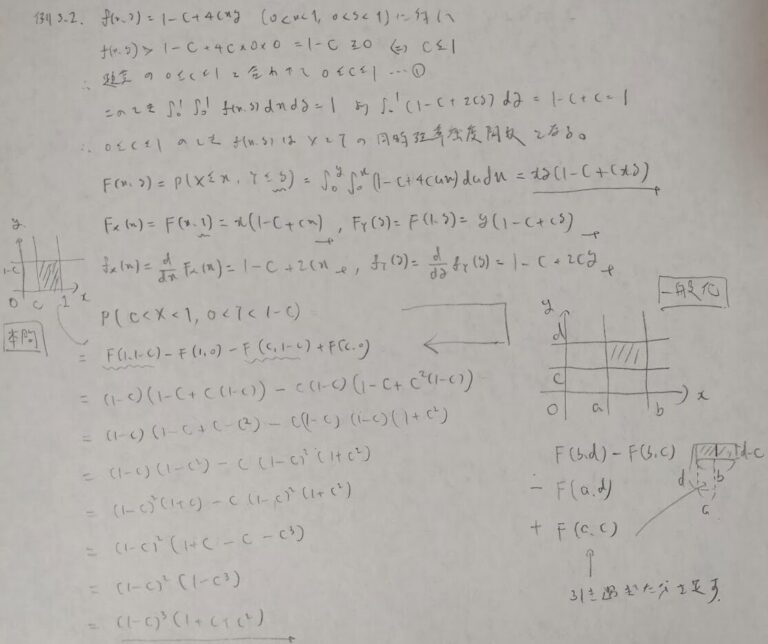 例3.2. f(x,y) = 1-C+4Cxy (0<x<1, 0<y<1) に対し
f(x,y) > 1-C+4C×0×0 = 1-C ≧0 ⇔ C≦1
∴ 題意の 0≦C≦1 と合わせて 0≦C≦1 …①
このとき ∫₀¹∫₀¹ f(x,y)dxdy=1 より ∫₀¹(1-C+2Cy)dy = 1-C+C=1
∴ 0≦C≦1 のとき f(x,y)は X と Y の同時確率密度関数となる。
F(x,y) = P(X≦x, Y≦y) = ∫₀^y∫₀^x (1-C+4Cuv)dudv = xy(1-C+Cxy)
Fx(x) = F(x,1) = x(1-C+Cx), FY(y)=F(1,y)= y(1-C+Cy)
fx(x)= d/dx Fx(x)=1-C+2Cx, fY(y)= d/dy fY(y)= 1-C+2Cy
P(C<X<1, 0<Y<1-C)
= F(1,1-C) - F(1,0) - F(C,1-C) + F(C,0)
= (1-C)(1-C+C(1-C)) - C(1-C)(1-C+C²(1-C))
= (1-C)(1-C+C-C²) - C(1-C)(1-C)(1+C²)
= (1-C)(1-C²) - C(1-C)²(1+C²)
= (1-C)²(1+C) - C(1-C)²(1+C²)
= (1-C)²(1+C-C-C³)
= (1-C)²(1-C³)
= (1-C)³(1+C+C²)
y
1-C
0 C 1 x
本問
一般化
y
d
C
0 a b x
F(b,d) - F(b,c)
- F(a,d)
+ F(c,c)
d-c
d b
a
引き過ぎた分を足す